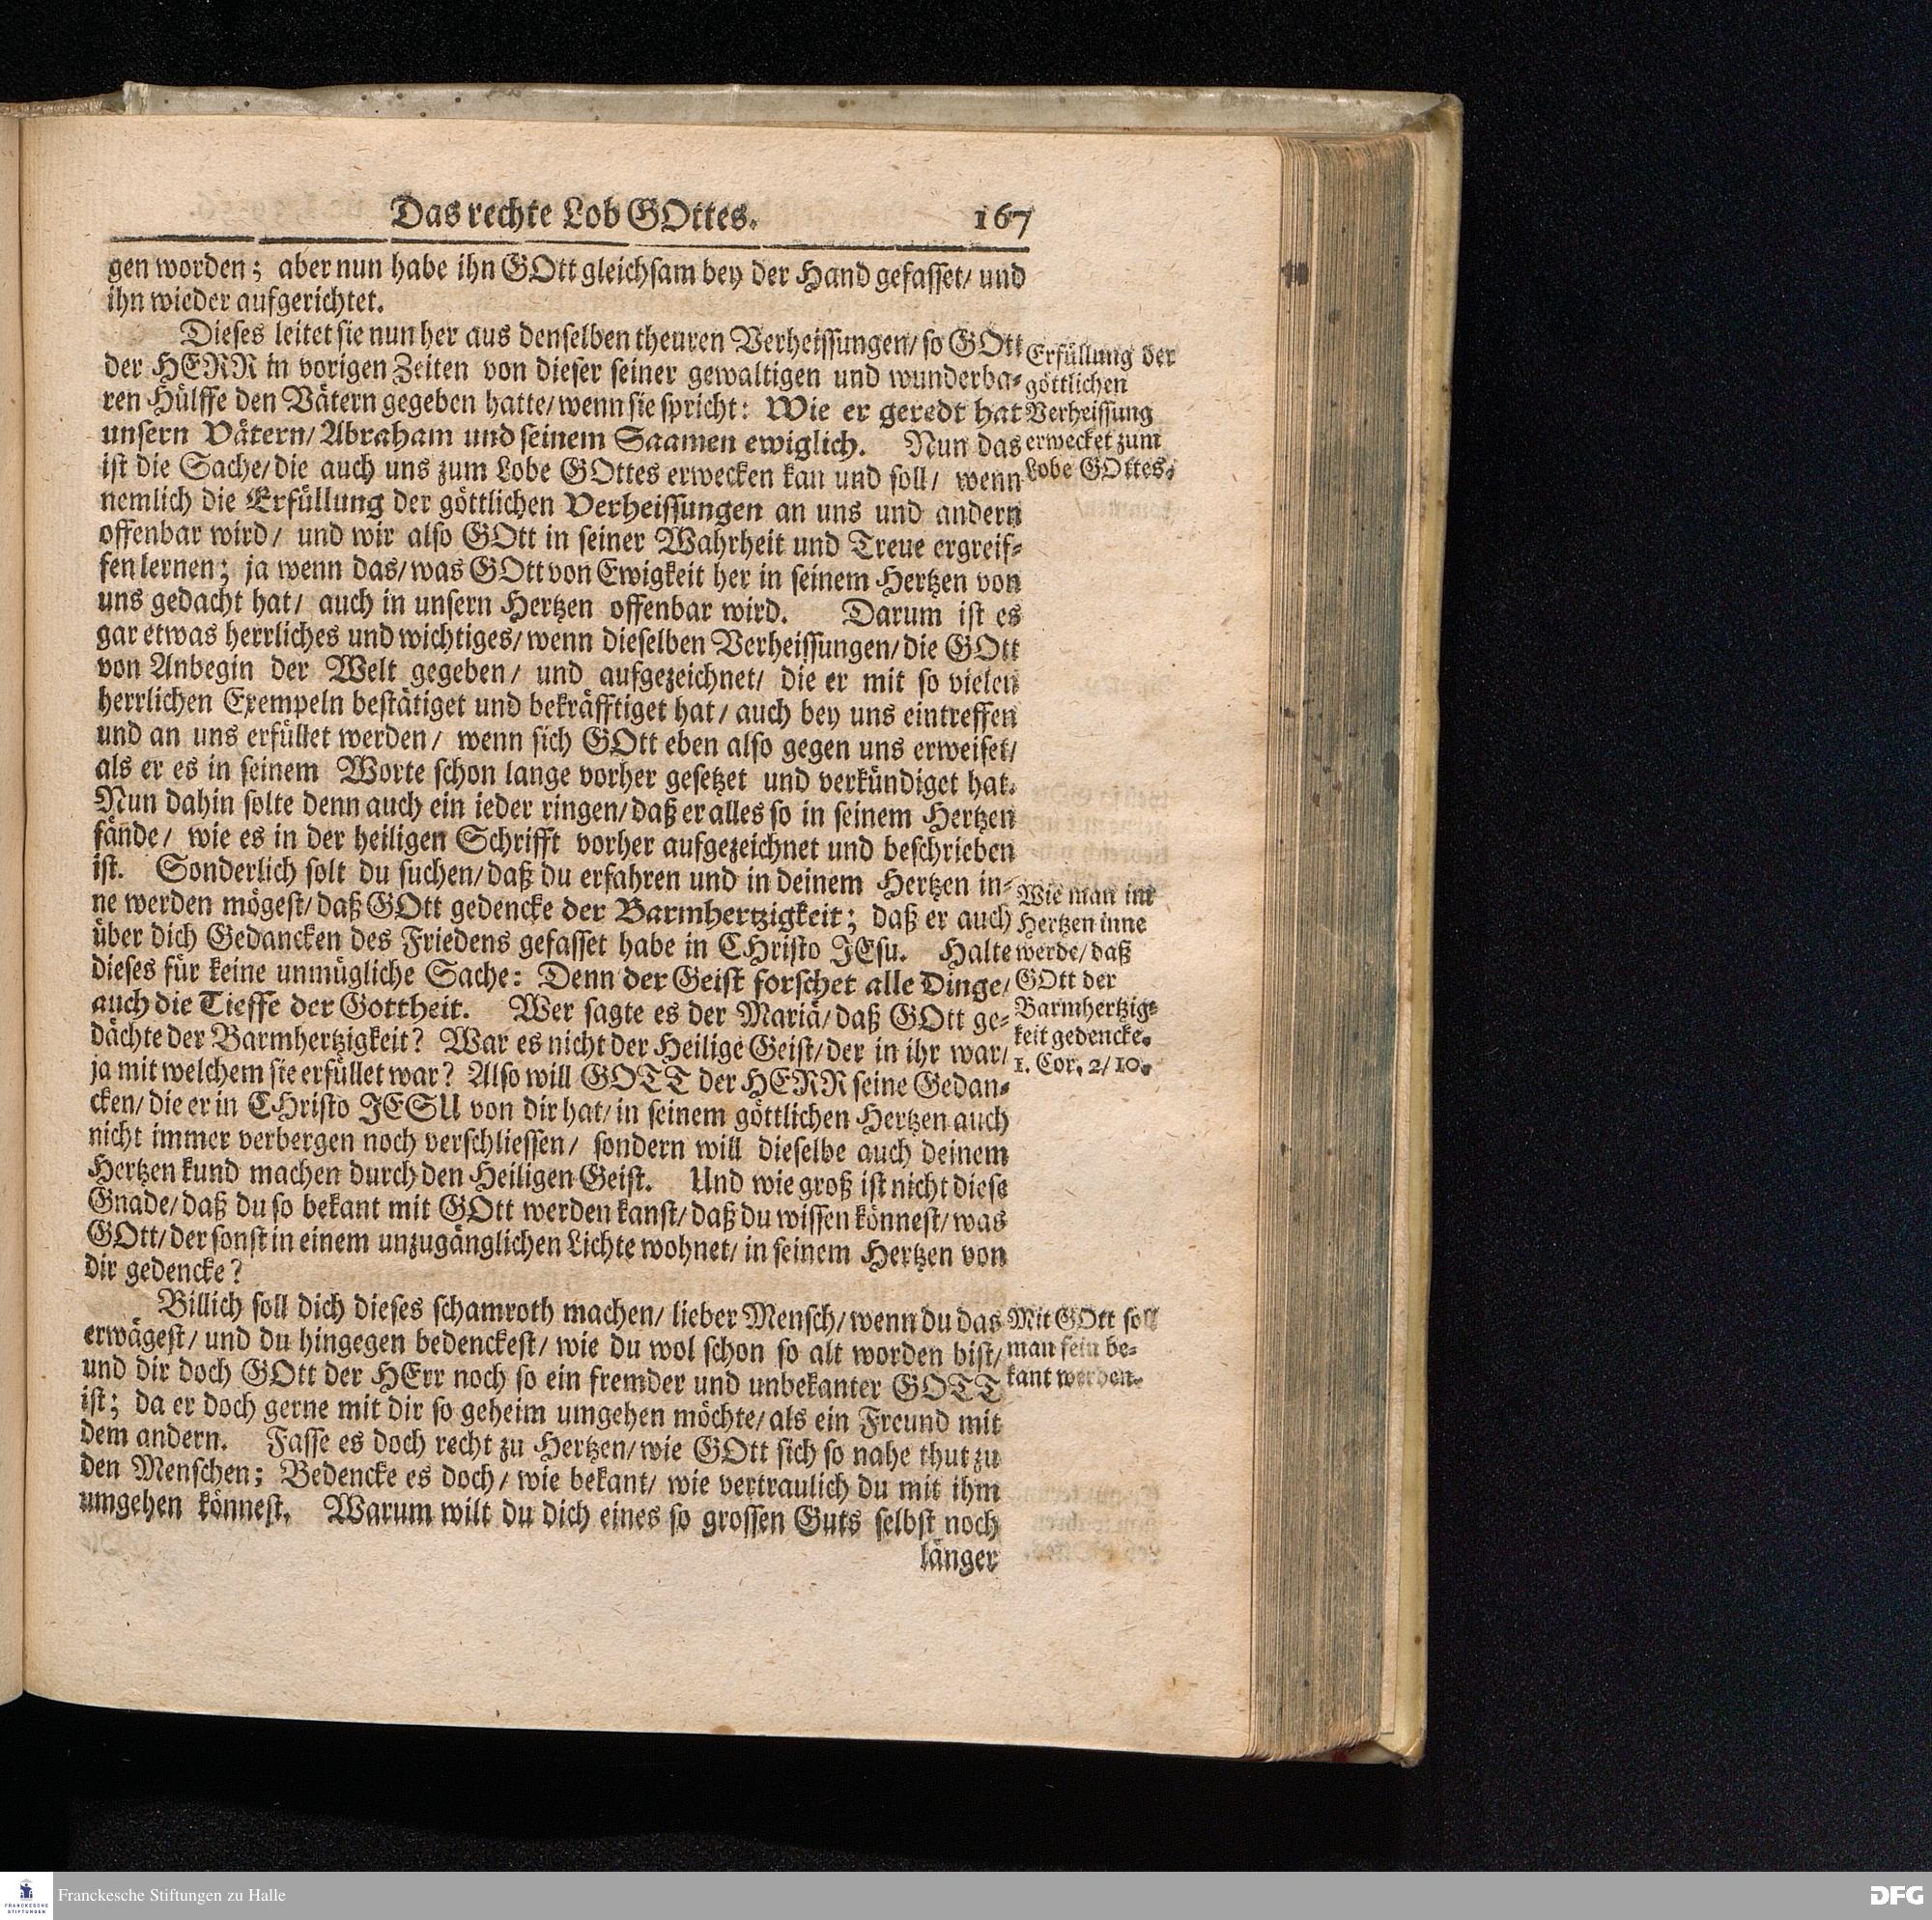 Das rechte Lob GOttes. 167
gen worden; aber nun habe ihn GOtt gleichsam bey der Hand gefasset/ und
ihn wieder aufgerichtet.
Dieses leitet sie nun her aus denselben theuren Verheissungen/ so GOtt
der HERR in vorigen Zeiten von dieser seiner gewaltigen und wunderba-
ren Hülffe den Vätern gegeben hatte/ wenn sie spricht: Wie er geredt hat
unsern Vätern/ Abraham und seinem Saamen ewiglich. Nun das
ist die Sache/ die auch uns zum Lobe GOttes erwecken kan und soll/ wenn
nemlich die Erfüllung der göttlichen Verheissungen an uns und andern
offenbar wird/ und wir also GOtt in seiner Wahrheit und Treue ergreif-
fen lernen; ja wenn das/ was GOtt von Ewigkeit her in seinem Hertzen von
uns gedacht hat/ auch in unsern Hertzen offenbar wird. Darum ist es
gar etwas herrliches und wichtiges/ wenn dieselben Verheissungen/ die GOtt
von Anbegin der Welt gegeben/ und aufgezeichnet/ die er mit so vielen
herrlichen Exempeln bestätiget und bekräfftiget hat/ auch bey uns eintreffen
und an uns erfüllet werden/ wenn sich GOtt eben also gegen uns erweiset/
als er es in seinem Worte schon lange vorher gesetzet und verkündiget hat.
Nun dahin solte denn auch ein ieder ringen/ daß er alles so in seinem Hertzen
fände/ wie es in der heiligen Schrifft vorher aufgezeichnet und beschrieben
ist. Sonderlich solt du suchen/ daß du erfahren und in deinem Hertzen in-
ne werden mögest/ daß GOtt gedencke der Barmhertzigkeit; daß er auch
über dich Gedancken des Friedens gefasset habe in CHristo JEsu. Halte
dieses für keine unmügliche Sache: Denn der Geist forschet alle Dinge/
auch die Tieffe der Gottheit. Wer sagte es der Mariä/ daß GOtt ge-
dächte der Barmhertzigkeit? War es nicht der Heilige Geist/ der in ihr war/
ja mit welchem sie erfüllet war? Also will GOTT der HERR seine Gedan-
cken/ die er in CHristo JESU von dir hat/ in seinem göttlichen Hertzen auch
nicht immer verbergen noch verschliessen/ sondern will dieselbe auch deinem
Hertzen kund machen durch den Heiligen Geist. Und wie groß ist nicht diese
Gnade/ daß du so bekant mit GOtt werden kanst/ daß du wissen könnest/ was
GOtt/ der sonst in einem unzugänglichen Lichte wohnet/ in seinem Hertzen von
dir gedencke?
Billich soll dich dieses schamroth machen/ lieber Mensch/ wenn du das
erwägest/ und du hingegen bedenckest/ wie du wol schon so alt worden bist/
und dir doch GOtt der HErr noch so ein fremder und unbekanter GOTT
ist; da er doch gerne mit dir so geheim umgehen möchte/ als ein Freund mit
dem andern. Fasse es doch recht zu Hertzen/ wie GOtt sich so nahe thut zu
den Menschen; Bedencke es doch/ wie bekant/ wie vertraulich du mit ihm
umgehen könnest. Warum wilt du dich eines so grossen Guts selbst noch
länger
Erfüllung der
göttlichen
Verheissung
erwecket zum
Lobe GOttes.
Wie man im
Hertzen inne
werde/ daß
GOtt der
Barmhertzig-
keit gedencke.
1. Cor. 2/10.
Mit GOtt soll
man fein be-
kant werden.
Franckesche Stiftungen zu Halle
FRANCKESCHE
STIFTUNGEN
DFG